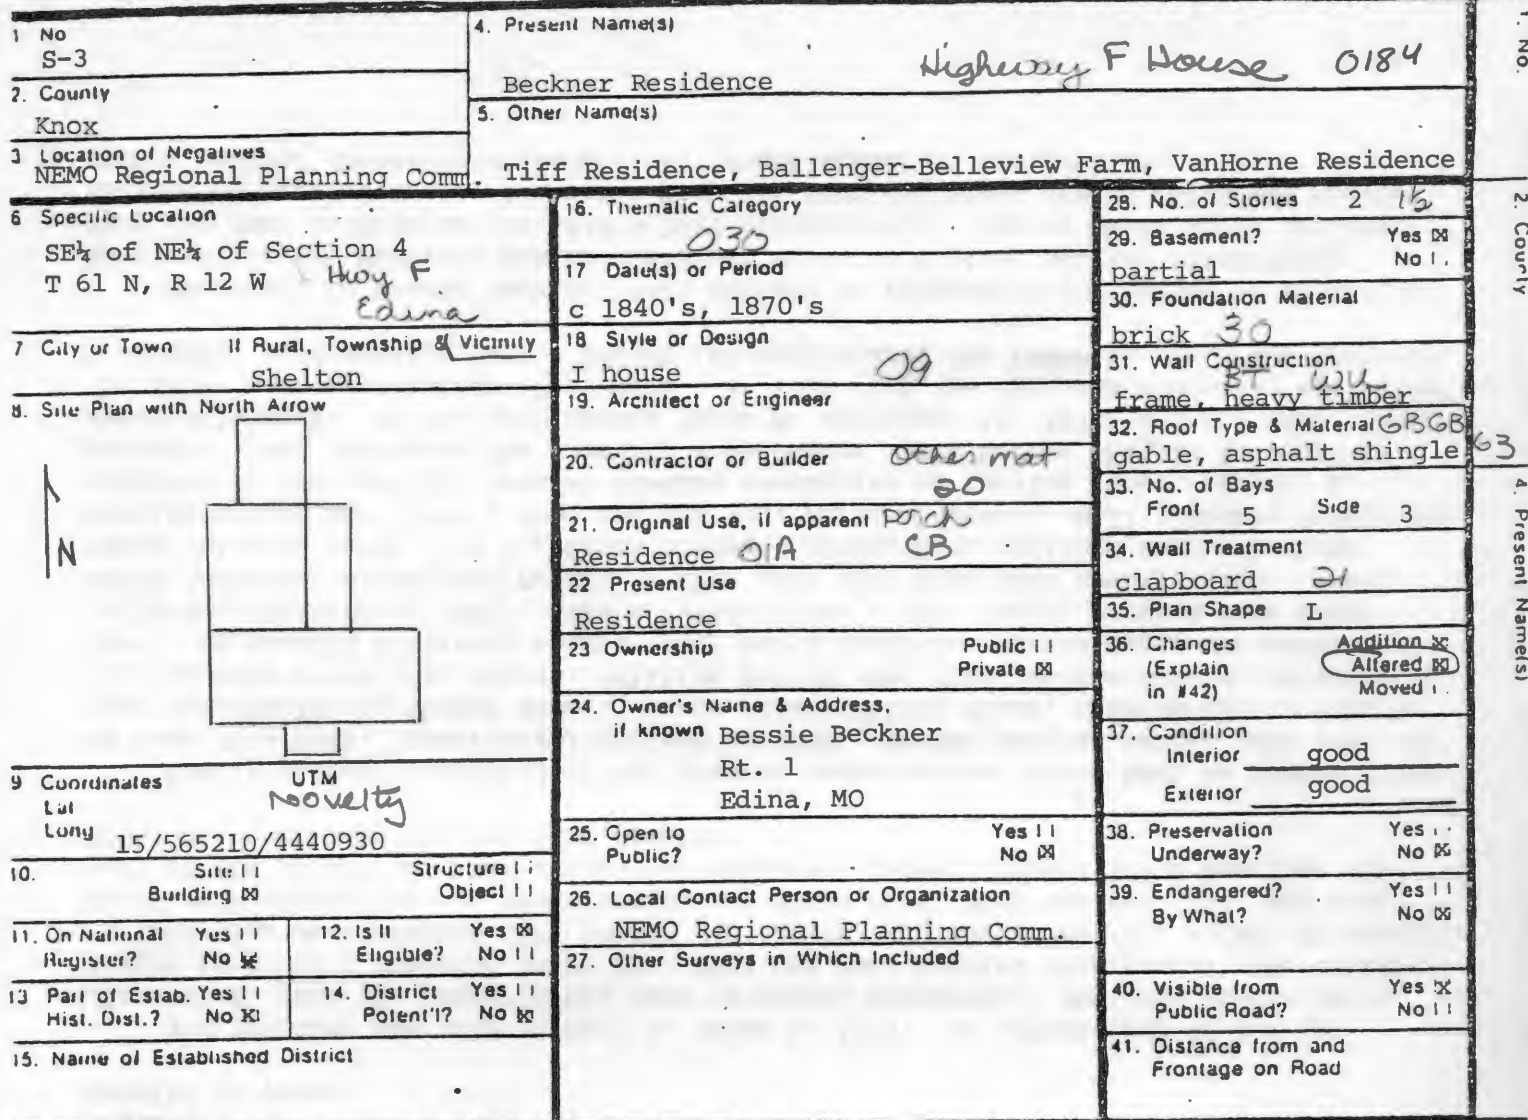 1 No
S-3
2. County
Knox
3 Location of Negatives
NEMO Regional Planning Comm.
4. Present Name(s)
Highway F House 0184
Beckner Residence
5. Other Name(s)
Tiff Residence, Ballenger-Belleview Farm, VanHorne Residence
6 Specific Location
SE¼ of NE¼ of Section 4
T 61 N, R 12 W Hwy F
Edina
7 City or Town If Rural, Township & Vicinity
Shelton
8. Site Plan with North Arrow
N
9 Coordinates UTM
Lat Novelty
Long 15/565210/4440930
10. Site Structure
Building ☒ Object
11. On National Register? Yes No ☒
12. Is It Eligible? Yes ☒ No
13 Part of Estab. Hist. Dist.? Yes No ☒
14. District Potent'l? Yes No ☒
15. Name of Established District
16. Thematic Category
030
17 Date(s) or Period
c 1840's, 1870's
18 Style or Design
I house 09
19. Architect or Engineer
20. Contractor or Builder Other mat
20
21. Original Use, if apparent Porch
Residence 01A CB
22 Present Use
Residence
23 Ownership Public
Private ☒
24. Owner's Name & Address,
if known Bessie Beckner
Rt. 1
Edina, MO
25. Open to Yes
Public? No ☒
26. Local Contact Person or Organization
NEMO Regional Planning Comm.
27. Other Surveys in Which Included
28. No. of Stories 2 1½
29. Basement? Yes ☒
partial No
30. Foundation Material
brick 30
31. Wall Construction
BT WU
frame, heavy timber
32. Roof Type & Material GBGB
gable, asphalt shingle 63
33. No. of Bays
Front 5 Side 3
34. Wall Treatment
clapboard 21
35. Plan Shape L
36. Changes Addition ☒
(Explain Altered ☒
in #42) Moved
37. Condition
Interior good
Exterior good
38. Preservation Yes
Underway? No ☒
39. Endangered? Yes
By What? No ☒
40. Visible from Yes X
Public Road? No
41. Distance from and
Frontage on Road
1. No.
2. County
4. Present Name(s)